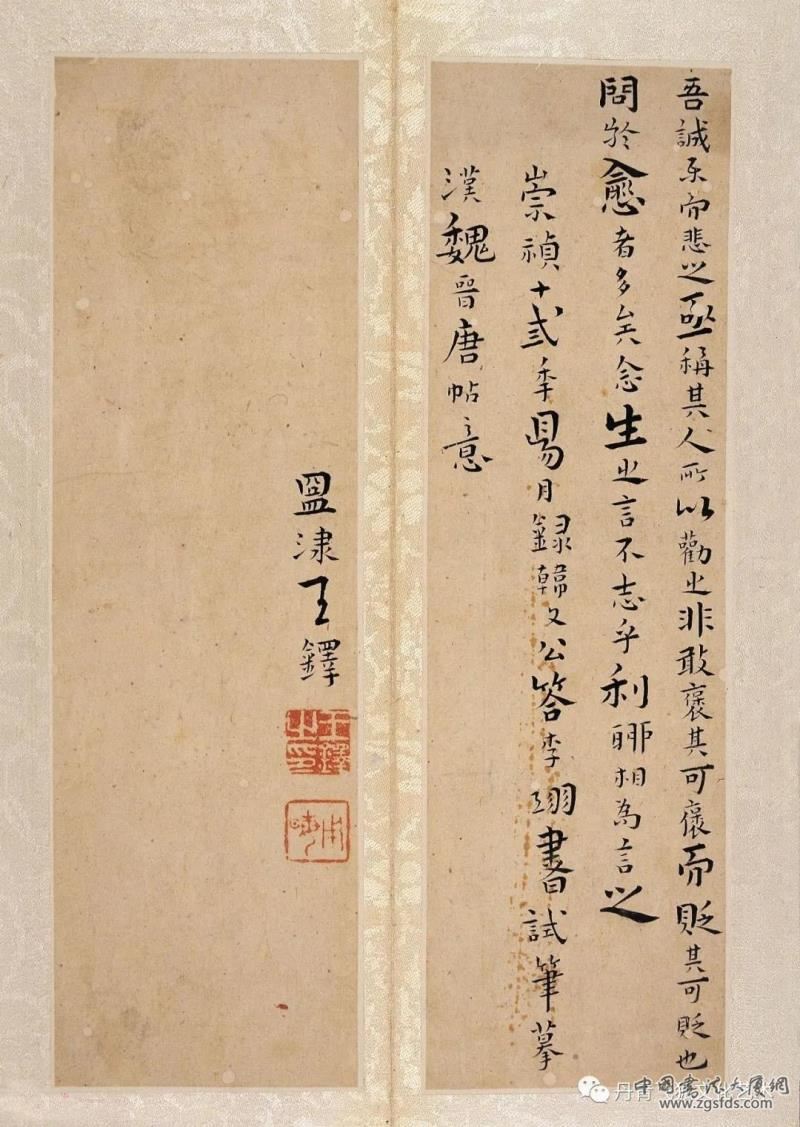 吾誠樂而悲之亟稱其人所以勸之非敢褒其可褒而貶其可貶也
問於愈者多矣念生之言不志乎利聊相為言之
崇禎十弎季昜月錄韓文公答李翊書試筆摹
漢魏晉唐帖意
盟津王鐸
王鐸之印
中国书法大厦网
www.zgsfds.com